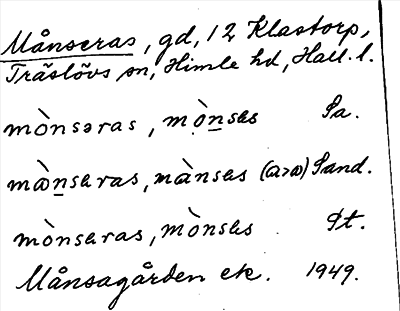 Månseras, gd, 12 Klastorp,
Träslövs sn, Himle hd, Hall. l.
mònsəras, mò̱nsɛs Pa.
mɷ̀nsɛras, mànsɛs (a>ɷ) Sand.
mònsɛras, mònsɛs Pt.
Månsagården etc. 1949.